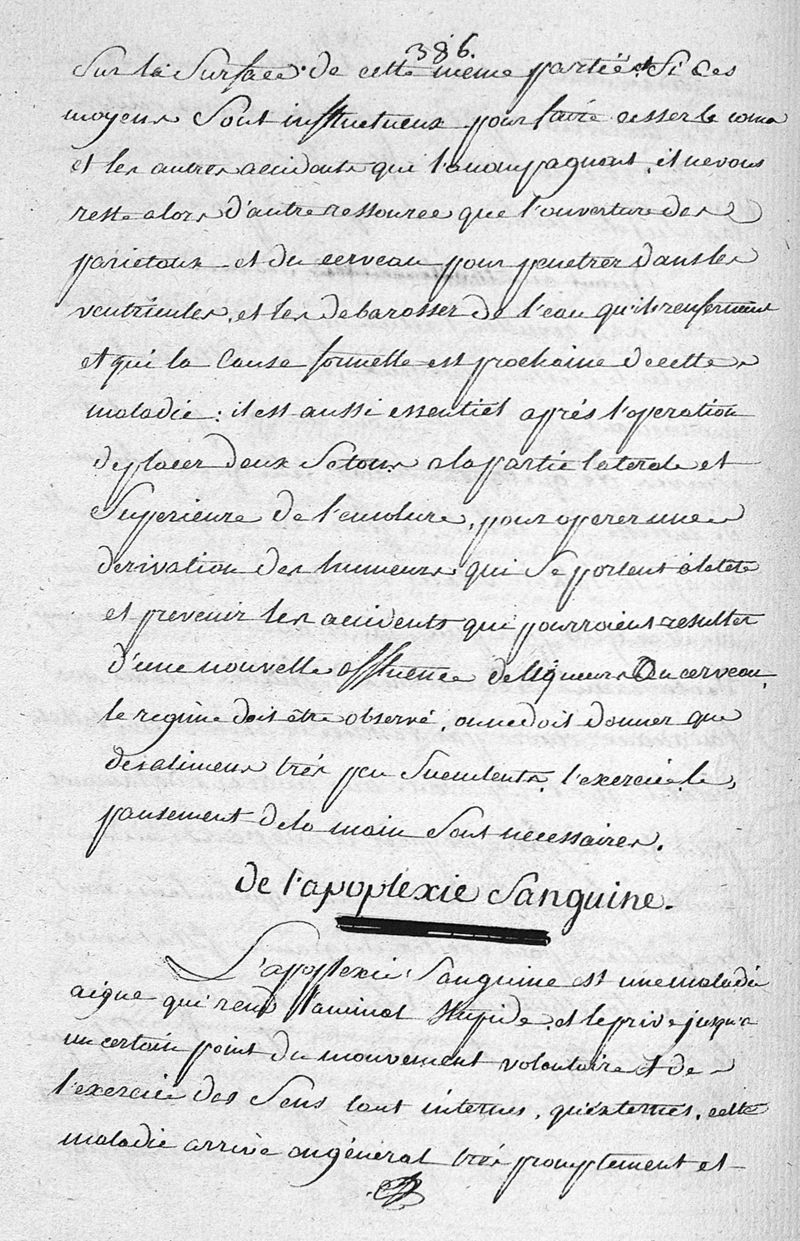 386.
Sur la Surface de cette même partie. Si Ces
moyens Sont infructueux pour faire cesser le coma
et les autres accidents qui l'accompagnent, il ne vous
reste alors d'autre ressource que l'ouverture des
parietaux et du cerveau pour penetrer dans les
ventricules, et les debarasser de l'eau qu'ils renferment
et qui la Cause formelle est prochaine de cette
maladie; il est aussi essentiel aprés l'operation
de placer deux Setons a la partie laterale et
Superieure de l'encolure, pour operer une
derivation des humeurs qui Se portent á la tete
et prevenir les accidents qui pourroient resulter
d'une nouvelle affluence de liqueurs Au cerveau.
le regime doit être observé, on ne doit donner que
des alimens trés peu Succulents, l'exercice, le
pansement de la main Sont necessaires.
De l'apoplexie Sanguine.
L'apoplexie Sanguine est une maladie
aigue qui rend l'animal Stupide, et le prive jusqu'a
un certain point du mouvement volontaire & de
l'exercice des Sens tant internes, qu'externes, cette
maladie arrive en général trés promptement et